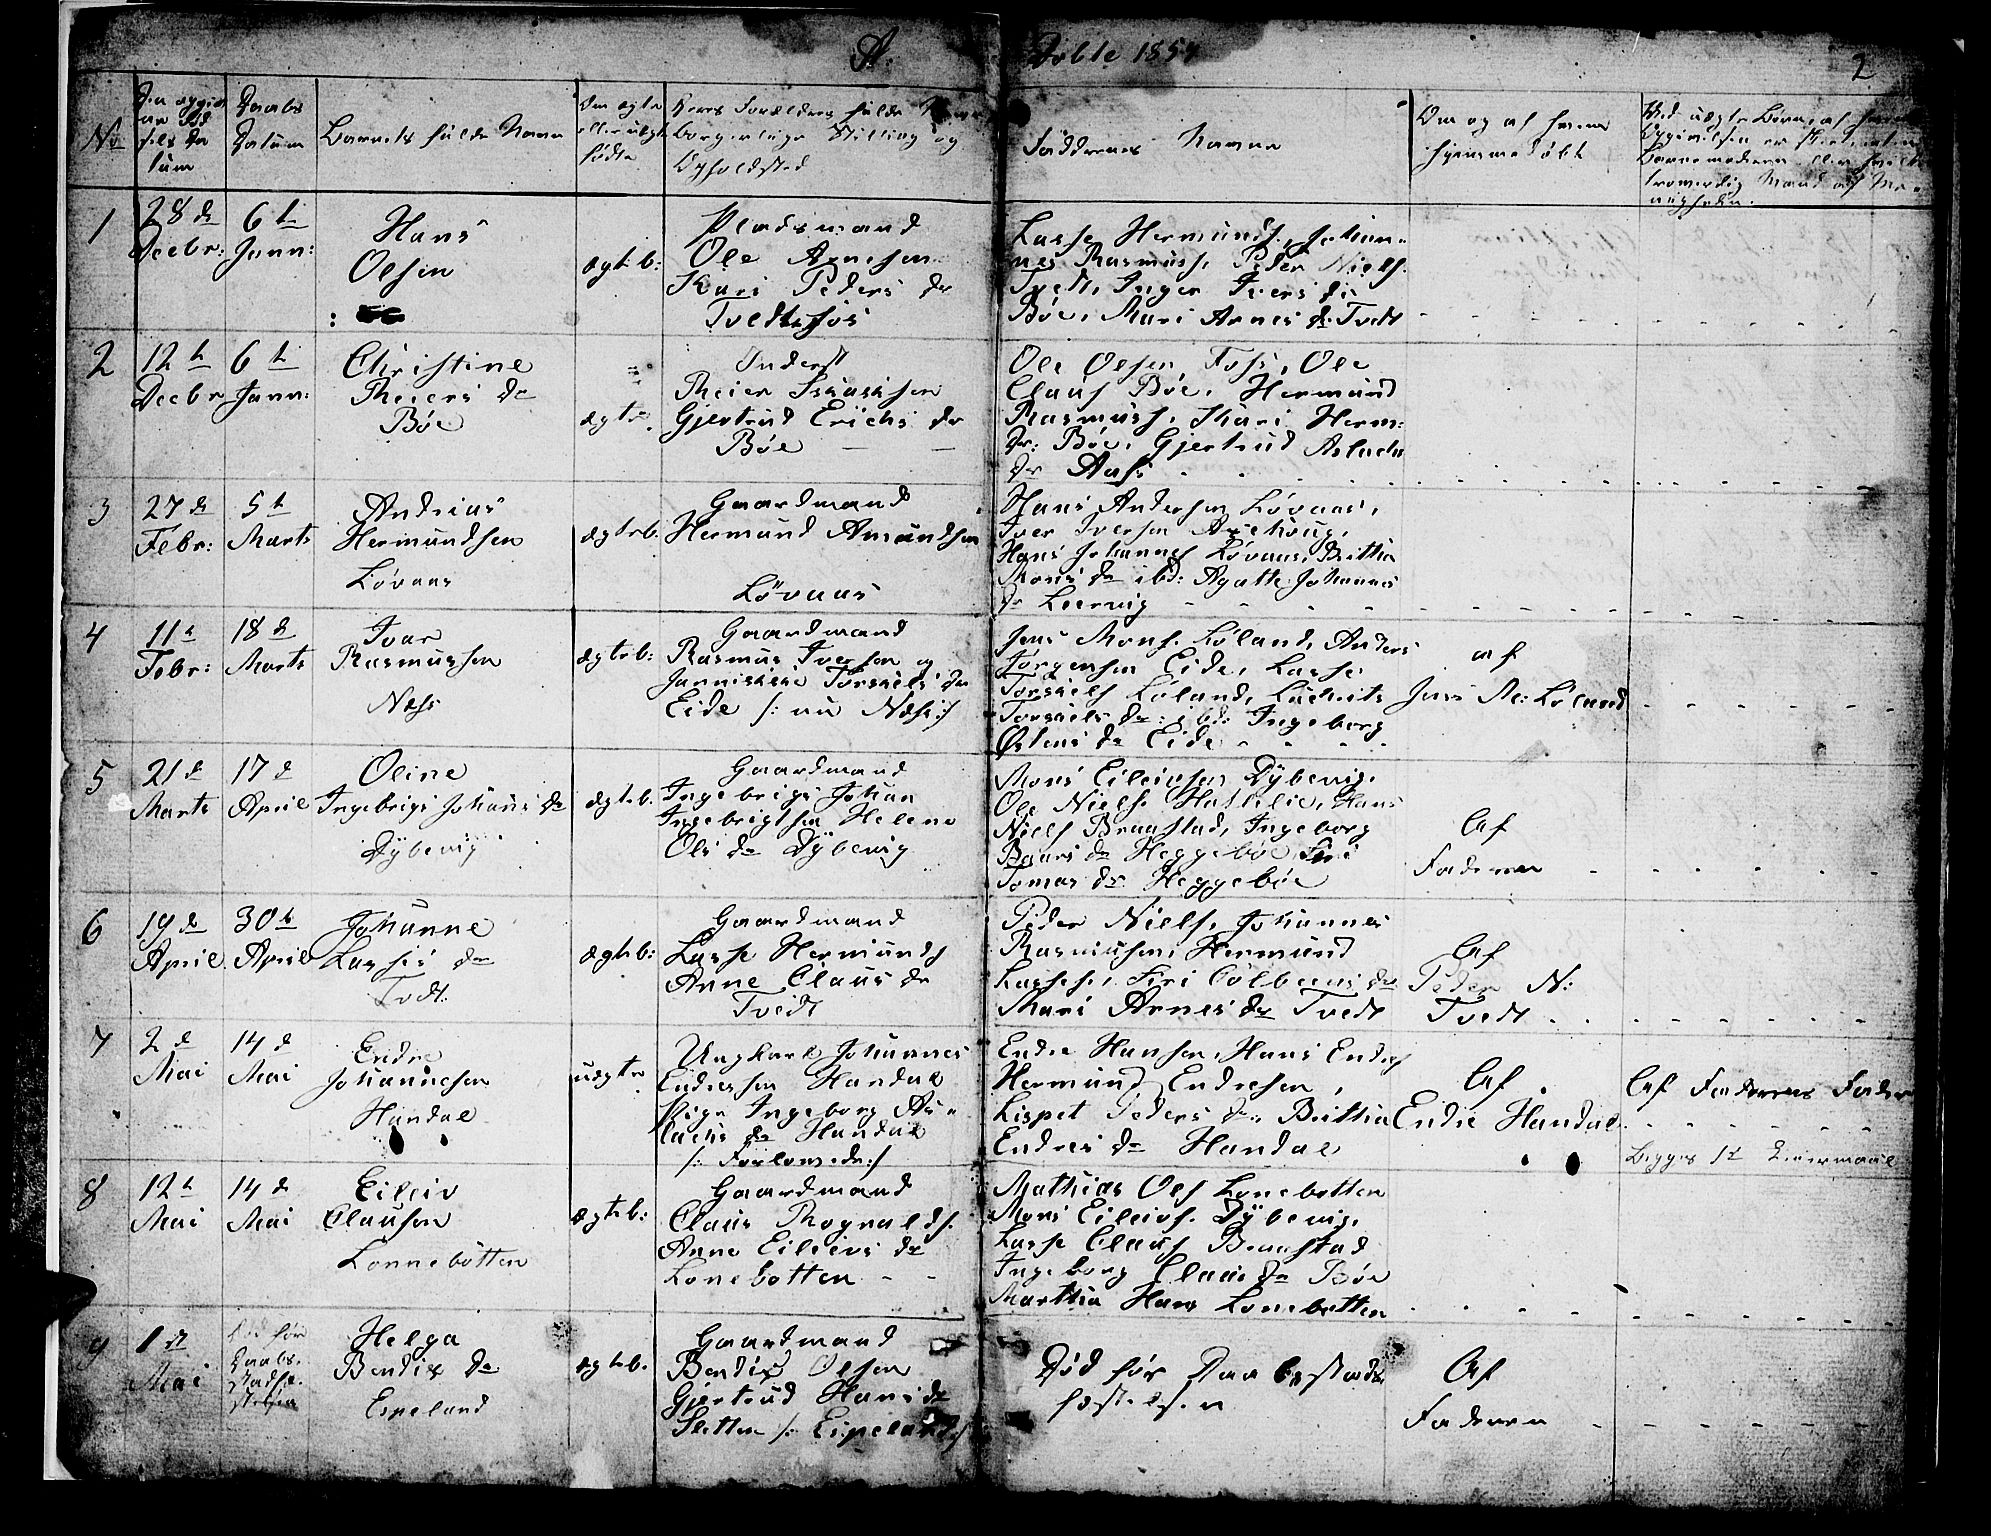 A. Døbte 1854
2
No
Den opgivne Fødselsdatum
Daabs Datum
Barnets fulde Navn
Om ægte eller uægte fødte
Deres Forældres fulde Navne borgerlige Stilling og Opholdsted
Faddernes Navne
Om og af hvem hjemmedøbt
Ved uægte Børn, af hvem
1
28de Decbr:
6te Janu:
Hans
Olsen
ægteb:
Pladsmand
Ole Arnesen
Kari Peders Dr
Lasse Hermunds. Johan-
nes Rasmuss. Peder Niels.
Tvedt, Inger Ivers Dr
Bøe, Mari Arnes Dr Tvedt
2
12te Decbr
6te Janu:
Christine
Reiers Dr
Bøe
ægte
Inderst
Reier Isaksen
Gjertrud Erichs Dr
Bøe
Ole Olsen Foss, Ole
Claus Bøe, Hermund
Rasmuss. Kari Herm:
Dr: Bøe, Gjertrud Aslachs
Dr Aas
3
27de Febr:
5te Marts
Andreas
Hermundsen
Løvaas
ægteb:
Gaardmand
Hermund Amundsen
Løvaas
Hans Andersen Løvaas,
Iver Iversen
Hans Johannes Løvaas, Brithia
Mons Dr ibd: Agathe Johannes
Dr Leervig
4
11te Febr:
18de Marts
Ivar
Rasmussen
Næss
ægteb:
Gaardmand
Rasmus Iversen og
Torkiels Dr
Eide /: nu Næss :/
Jens Mons. Løland, Anders
Jørgensen Eide, Lasse
Torkiels Løland,
Torkiels Dr: ibd: Ingeborg
Østens Dr Eide
af
Jens M: Løland
5
21de Marts
17de April
Oline
Ingebrigt Johans Dr
Dybevig
ægteb.
Gaardmand
Ingebrigt Johan
Ingebrigtsen Helene
Ols Dr Dybevig
Mons Eilevsen Dybevig,
Ole Niels. Hatlelie, Hans
Niels Braastad, Ingeborg
Baars Dr Heggebøe Siri
Tomas Dr Heggebøe
Af
Faderen
6
19de April
30te April
Johanne
Lasses Dr
Tvedt
ægteb:
Gaardmand
Lasse Hermunds
Anne Claus Dr
Tvedt
Peder Niels, Johannes
Rasmusen, Hermund
Lasses., Siri Colbeens Dr
Mari Arnes Dr Tvedt
Af
Peder N:
Tvedt
7
2de Mai
14de Mai
Endre
Johannesen
Handal
uægte
Ungkarl Johannes
Endresen Handal
Pige Ingeborg As-
lachs Dr Handal
/: Forlovede :/
Endre Hansen, Hans Endres
Hermund Endresen,
Lispet Peders Dr. Brithia
Endres Dr Handal
Af
Endre Handal
Af Faderens Fader
Begges 1st Leiermaal
8
12te Mai
14de Mai
Eileiv
Clausen
Lønnebotten
ægteb:
Gaardmand
Claus Rognalds.
Anne Eileivs Dr
Lønebotten
Mathias Ols Lønebotten
Mons Eileivs. Dybevig,
Lasse Claus Braastad
Ingeborg Claus Dr Bøe
Marthia Hans Lønebotten
9
1ste Mai
død før Daabs-
stadfæ-
stelsen
Helga
Bendix Dr
Espeland
ægteb.
Gaardmand
Bendix Olsen
Gjertrud Hans Dr
Sletten /: Espeland :/
Død før Daabsstad-
fæstelsen
Af
Faderen